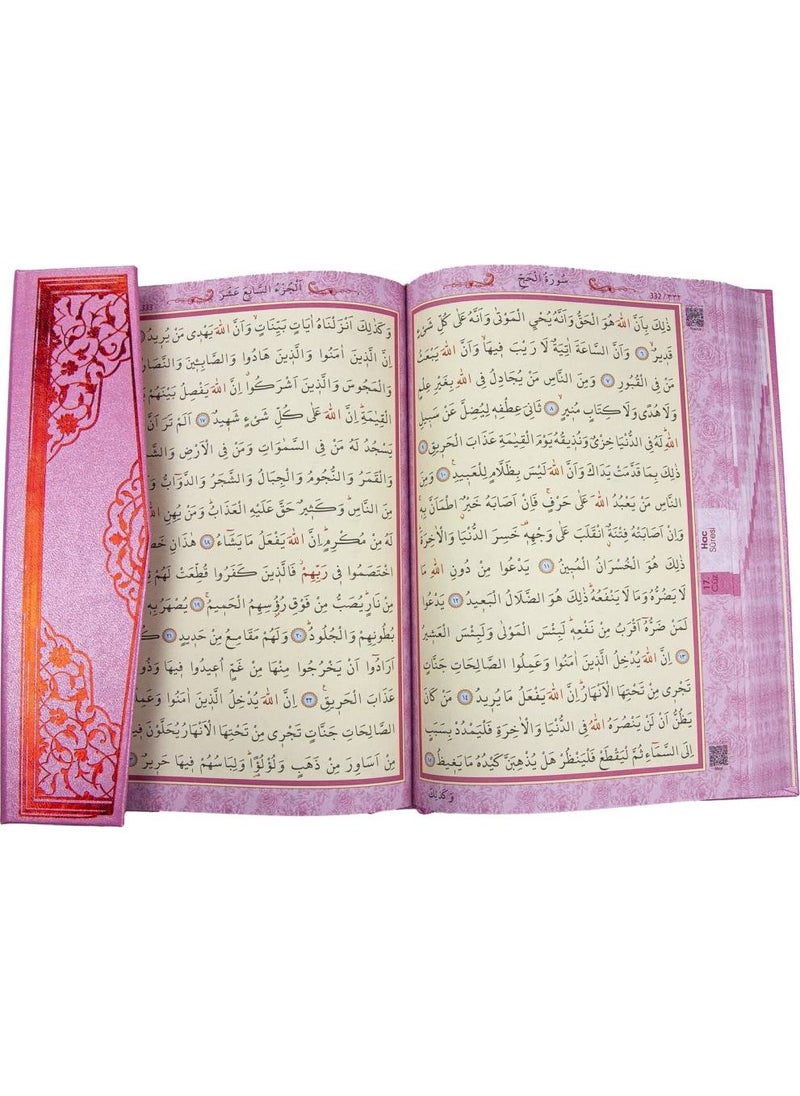 سُورَةُ الْحَجِّ
332/٣٣٢
ذٰلِكَ بِاَنَّ اللّٰهَ هُوَ الْحَقُّ وَاَنَّهُ يُحْيِ الْمَوْتٰى وَاَنَّهُ عَلٰى كُلِّ شَيْءٍ
قَدٖيرٌۙ ٦ وَاَنَّ السَّاعَةَ اٰتِيَةٌ لَا رَيْبَ فٖيهَاۙ وَاَنَّ اللّٰهَ يَبْعَثُ
مَنْ فِي الْقُبُورِ ٧ وَمِنَ النَّاسِ مَنْ يُجَادِلُ فِي اللّٰهِ بِغَيْرِ عِلْمٍ
وَلَا هُدًى وَلَا كِتَابٍ مُنٖيرٍۙ ٨ ثَانِيَ عِطْفِهٖ لِيُضِلَّ عَنْ سَبٖيلِ
اللّٰهِؕ لَهُ فِي الدُّنْيَا خِزْيٌ وَنُذٖيقُهُ يَوْمَ الْقِيٰمَةِ عَذَابَ الْحَرٖيقِ ٩
ذٰلِكَ بِمَا قَدَّمَتْ يَدَاكَ وَاَنَّ اللّٰهَ لَيْسَ بِظَلَّامٍ لِلْعَبٖيدِࣖ ١٠ وَمِنَ
النَّاسِ مَنْ يَعْبُدُ اللّٰهَ عَلٰى حَرْفٍۚ فَاِنْ اَصَابَهُ خَيْرٌۨ اطْمَاَنَّ بِهٖۚ
وَاِنْ اَصَابَتْهُ فِتْنَةٌۨ انْقَلَبَ عَلٰى وَجْهِهٖࣞ خَسِرَ الدُّنْيَا وَالْاٰخِرَةَؕ
ذٰلِكَ هُوَ الْخُسْرَانُ الْمُبٖينُ ١١ يَدْعُوا مِنْ دُونِ اللّٰهِ مَا
لَا يَضُرُّهُ وَمَا لَا يَنْفَعُهُؕ ذٰلِكَ هُوَ الضَّلَالُ الْبَعٖيدُۚ ١٢ يَدْعُوا
لَمَنْ ضَرُّهُٓ اَقْرَبُ مِنْ نَفْعِهٖؕ لَبِئْسَ الْمَوْلٰى وَلَبِئْسَ الْعَشٖيرُ
١٣ اِنَّ اللّٰهَ يُدْخِلُ الَّذٖينَ اٰمَنُوا وَعَمِلُوا الصَّالِحَاتِ جَنَّاتٍ
تَجْرٖي مِنْ تَحْتِهَا الْاَنْهَارُؕ اِنَّ اللّٰهَ يَفْعَلُ مَا يُرٖيدُ ١٤ مَنْ كَانَ
يَظُنُّ اَنْ لَنْ يَنْصُرَهُ اللّٰهُ فِي الدُّنْيَا وَالْاٰخِرَةِ فَلْيَمْدُدْ بِسَبَبٍ
اِلَى السَّمَٓاءِ ثُمَّ لْيَقْطَعْ فَلْيَنْظُرْ هَلْ يُذْهِبَنَّ كَيْدُهُ مَا يَغٖيظُ ١٥
وَكَذٰلِكَ
Hac
Sûresi
17.
Cüz
اَلْجُزْءُ السَّابِعُ عَشَرَ
333
وَكَذٰلِكَ اَنْزَلْنَاهُ اٰيَاتٍ بَيِّنَاتٍۙ وَاَنَّ اللّٰهَ يَهْدٖي مَنْ يُرٖيدُ
اِنَّ الَّذٖينَ اٰمَنُوا وَالَّذٖينَ هَادُوا وَالصَّابِـٖٔينَ وَالنَّصَارٰى
وَالْمَجُوسَ وَالَّذٖينَ اَشْرَكُواࣗ اِنَّ اللّٰهَ يَفْصِلُ بَيْنَهُمْ
الْقِيٰمَةِؕ اِنَّ اللّٰهَ عَلٰى كُلِّ شَيْءٍ شَهٖيدٌ ١٧ اَلَمْ تَرَ اَنَّ
يَسْجُدُ لَهُ مَنْ فِي السَّمٰوَاتِ وَمَنْ فِي الْاَرْضِ
وَالْقَمَرُ وَالنُّجُومُ وَالْجِبَالُ وَالشَّجَرُ وَالدَّوَٓابُّ
مِنَ النَّاسِؕ وَكَثٖيرٌ حَقَّ عَلَيْهِ الْعَذَابُؕ وَمَنْ يُهِنِ اللّٰهُ
لَهُ مِنْ مُكْرِمٍؕ اِنَّ اللّٰهَ يَفْعَلُ مَا يَشَٓاءُࣕ ١٨ هٰذَانِ
اخْتَصَمُوا فٖي رَبِّهِمْؗ فَالَّذٖينَ كَفَرُوا قُطِّعَتْ لَهُمْ
مِنْ نَارٍؕ يُصَبُّ مِنْ فَوْقِ رُؤُسِهِمُ الْحَمٖيمُۚ ١٩ يُصْهَرُ بِهٖ
بُطُونِهِمْ وَالْجُلُودُؕ ٢٠ وَلَهُمْ مَقَامِعُ مِنْ حَدٖيدٍ ٢١
اَرَادُٓوا اَنْ يَخْرُجُوا مِنْهَا مِنْ غَمٍّ اُعٖيدُوا فٖيهَا
عَذَابَ الْحَرٖيقِࣖ ٢٢ اِنَّ اللّٰهَ يُدْخِلُ الَّذٖينَ اٰمَنُوا
الصَّالِحَاتِ جَنَّاتٍ تَجْرٖي مِنْ تَحْتِهَا الْاَنْهَارُ يُحَلَّوْنَ فٖيهَا
مِنْ اَسَاوِرَ مِنْ ذَهَبٍ وَلُؤْلُؤًاؕ وَلِبَاسُهُمْ فٖيهَا حَرٖيرٌ